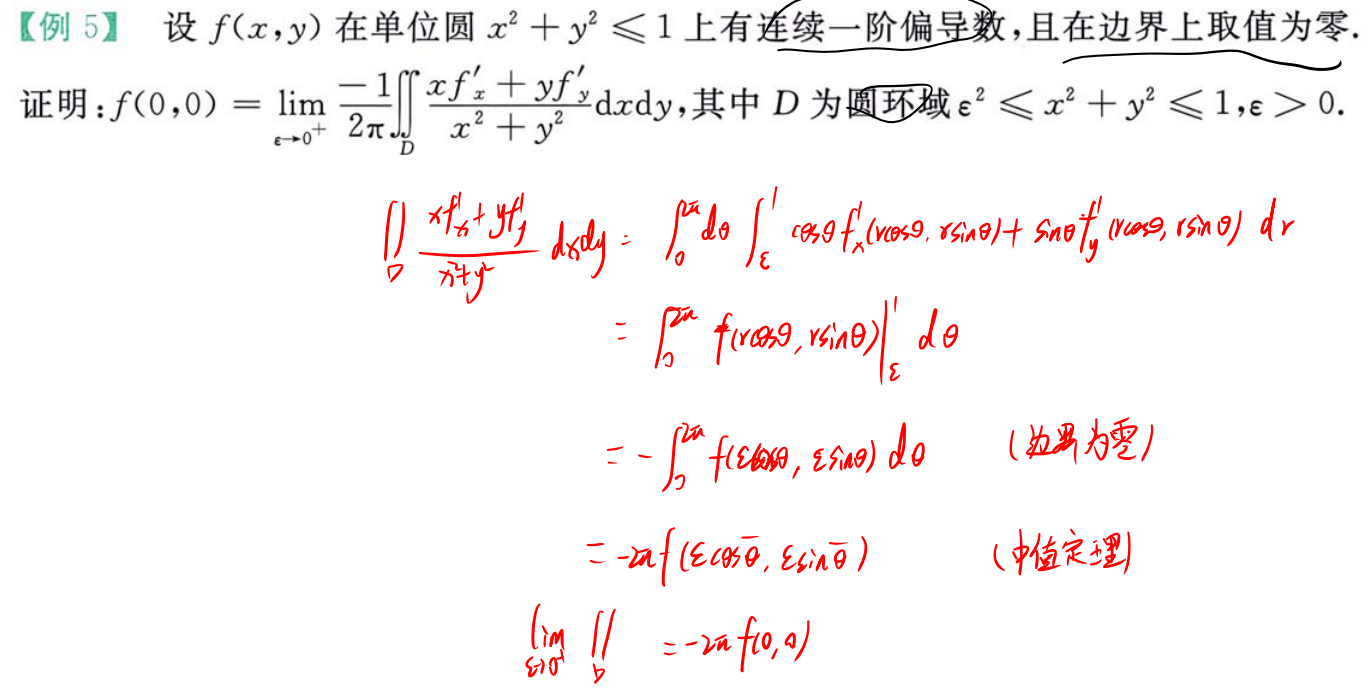 【例 5】 设 f(x,y) 在单位圆 x² + y² ⩽ 1 上有连续一阶偏导数,且在边界上取值为零.
证明:f(0,0) = lim_{ε→0⁺} \frac{-1}{2π}∬_D \frac{xf′_x + yf′_y}{x² + y²}dxdy,其中 D 为圆环域 ε² ⩽ x² + y² ⩽ 1,ε > 0.
∬_D \frac{xf′_x + yf′_y}{x²+y²} dxdy = ∫_0^{2π} dθ ∫_ε^1 cosθ f′_x(rcosθ, rsinθ) + sinθ f′_y(rcosθ, rsinθ) dr
= ∫_0^{2π} f(rcosθ, rsinθ)|_ε^1 dθ
= -∫_0^{2π} f(εcosθ, εsinθ) dθ (边界为零)
= -2π f(εcosθ̄, εsinθ̄) (中值定理)
lim_{ε→0⁺} ∬_D = -2π f(0,0)